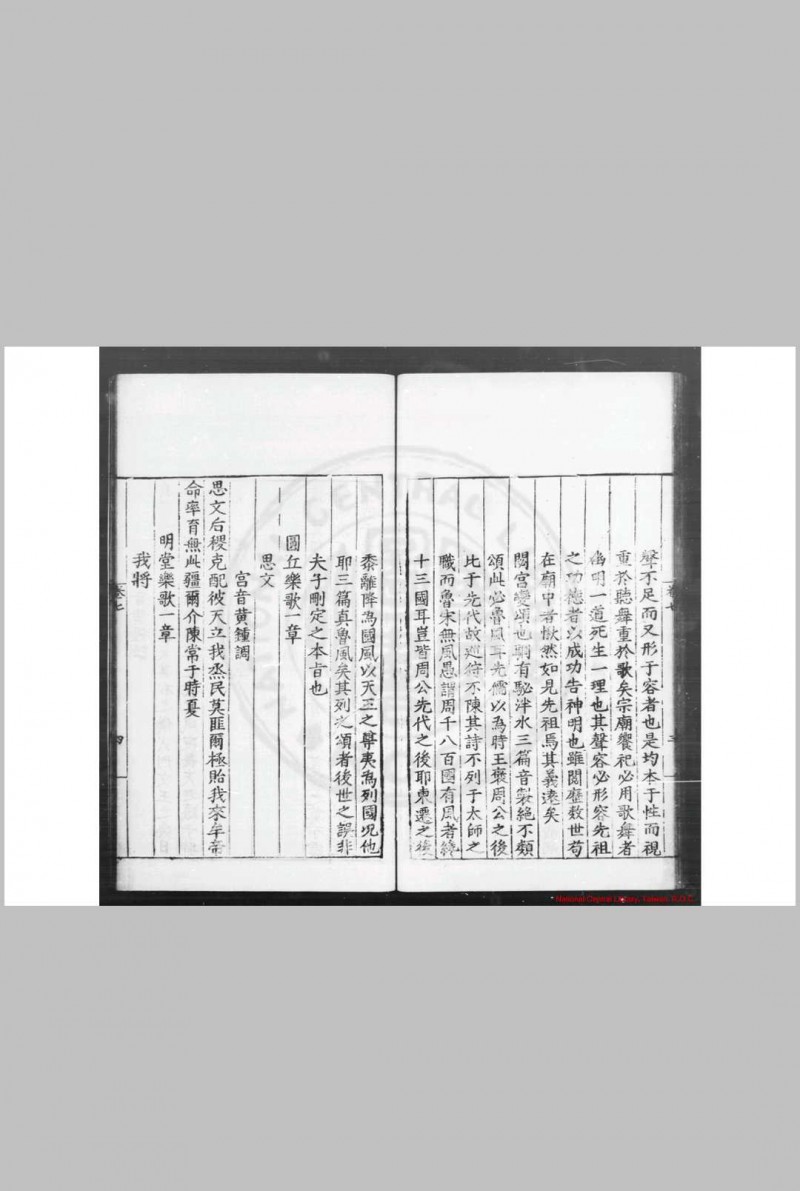 聲不足而又形于容者也是均本于性而視
重於聽舞重於歌矣宗廟饗祀必用歌舞者
幽明一道死生一理也其聲容必形容先祖
之功德者以成功告神明也雖閱歷數世苟
在廟中者愀然如見先祖焉其義遠矣
閟宮變頌也駉有駜泮水三篇音製絕不類
頌此必魯風耳先儒以為時王襃周公之後
比于先代故巡狩不陳其詩不列于太師之
職而魯宋無風愚謂周千八百國有風者纔
十三國耳豈皆周公先代之後耶東遷之後
黍離降為國風以天王之尊夷為列國况他
耶三篇真魯風矣其列之頌者後世之誤非
夫子刪定之本旨也
圜丘樂歌一章
思文
宮音黃鍾調
思文后稷克配彼天立我烝民莫匪爾極貽我來牟帝
命率育無此疆爾介陳常于時夏
明堂樂歌一章
我將
卷七
四
National Central Library, Taiwan, R.O.C.